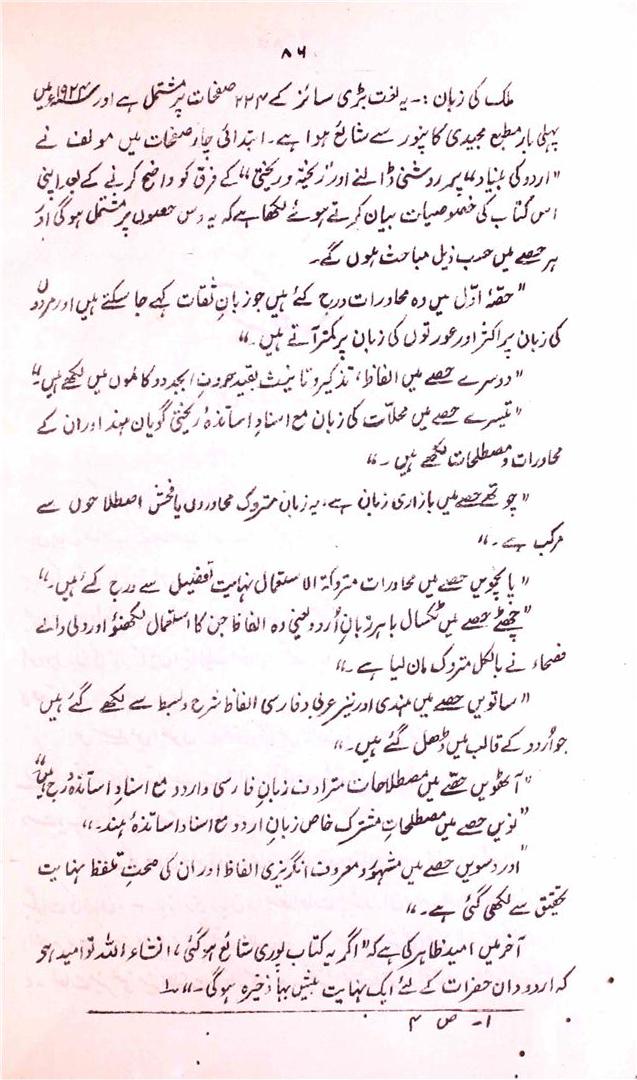 ۸۶
ملک کی زبان :- یہ لغت بڑی سائز کے ۲۲۴ صفحات پر مشتمل ہے اور ۱۹۲۴ء میں
پہلی بار مطبع مجیدی کانپور سے شائع ہوا ہے۔ ابتدائی چار صفحات میں مولف نے
"اردو کی بنیاد" پر روشنی ڈالنے اور "ریختہ و ریختی" کے فرق کو واضح کرنے کے بعد اپنی
اس کتاب کی خصوصیات بیان کرتے ہوئے لکھا ہے کہ یہ دس حصوں پر مشتمل ہوگی اور
ہر حصے میں حسب ذیل مباحث ہوں گے۔
"حصۂ اوّل میں وہ محاورات درج کئے ہیں جو زبانِ ثقات کہے جا سکتے ہیں اور مردوں
کی زبان پر اکثر اور عورتوں کی زبان پر کمتر آتے ہیں۔"
"دوسرے حصے میں الفاظ، تذکیر و تانیث بقید حروف ابجد دو کالموں میں لکھے ہیں۔"
"تیسرے حصے میں محلّات کی زبان مع اسنادِ اساتذۂ ریختی گویان ہند اور ان کے
محاورات و مصطلحات لکھے ہیں۔"
"چوتھے حصے میں بازاری زبان ہے، یہ زبان متروک محاوروں یا فحش اصطلاحوں سے
مرکب ہے۔"
"پانچویں حصے میں محاورات متروکۃ الاستعمال نہایت تفصیل سے درج کئے ہیں۔"
"چھٹے حصے میں ٹکسال باہر زبانِ اُردو یعنی وہ الفاظ جن کا استعمال لکھنؤ اور دلی والے
فصحاء نے بالکل متروک مان لیا ہے۔"
"ساتویں حصے میں ہندی اور نیز عربی و فارسی الفاظ شرح و بسط سے لکھے گئے ہیں
جو اُردو کے قالب میں ڈھل گئے ہیں۔"
"آٹھویں حصّے میں مصطلاحات مترادف زبانِ فارسی و اردو مع اسنادِ اساتذہ درج ہیں"
"نویں حصے میں مصطلحاتِ مشترک خاص زبانِ اردو مع اسناد اساتذۂ ہند۔"
"اور دسویں حصے میں مشہور و معروف انگریزی الفاظ اور ان کی صحتِ تلفظ نہایت
تحقیق سے لکھی گئی ہے۔"
آخر میں امید ظاہر کی ہے کہ "اگر یہ کتاب پوری شائع ہوگئی، انشاء اللہ تو امید ہے
کہ اردو دان حضرات کے لئے ایک نہایت بیش بہا ذخیرہ ہوگی۔" ۱؎
۱۔ ص ۴